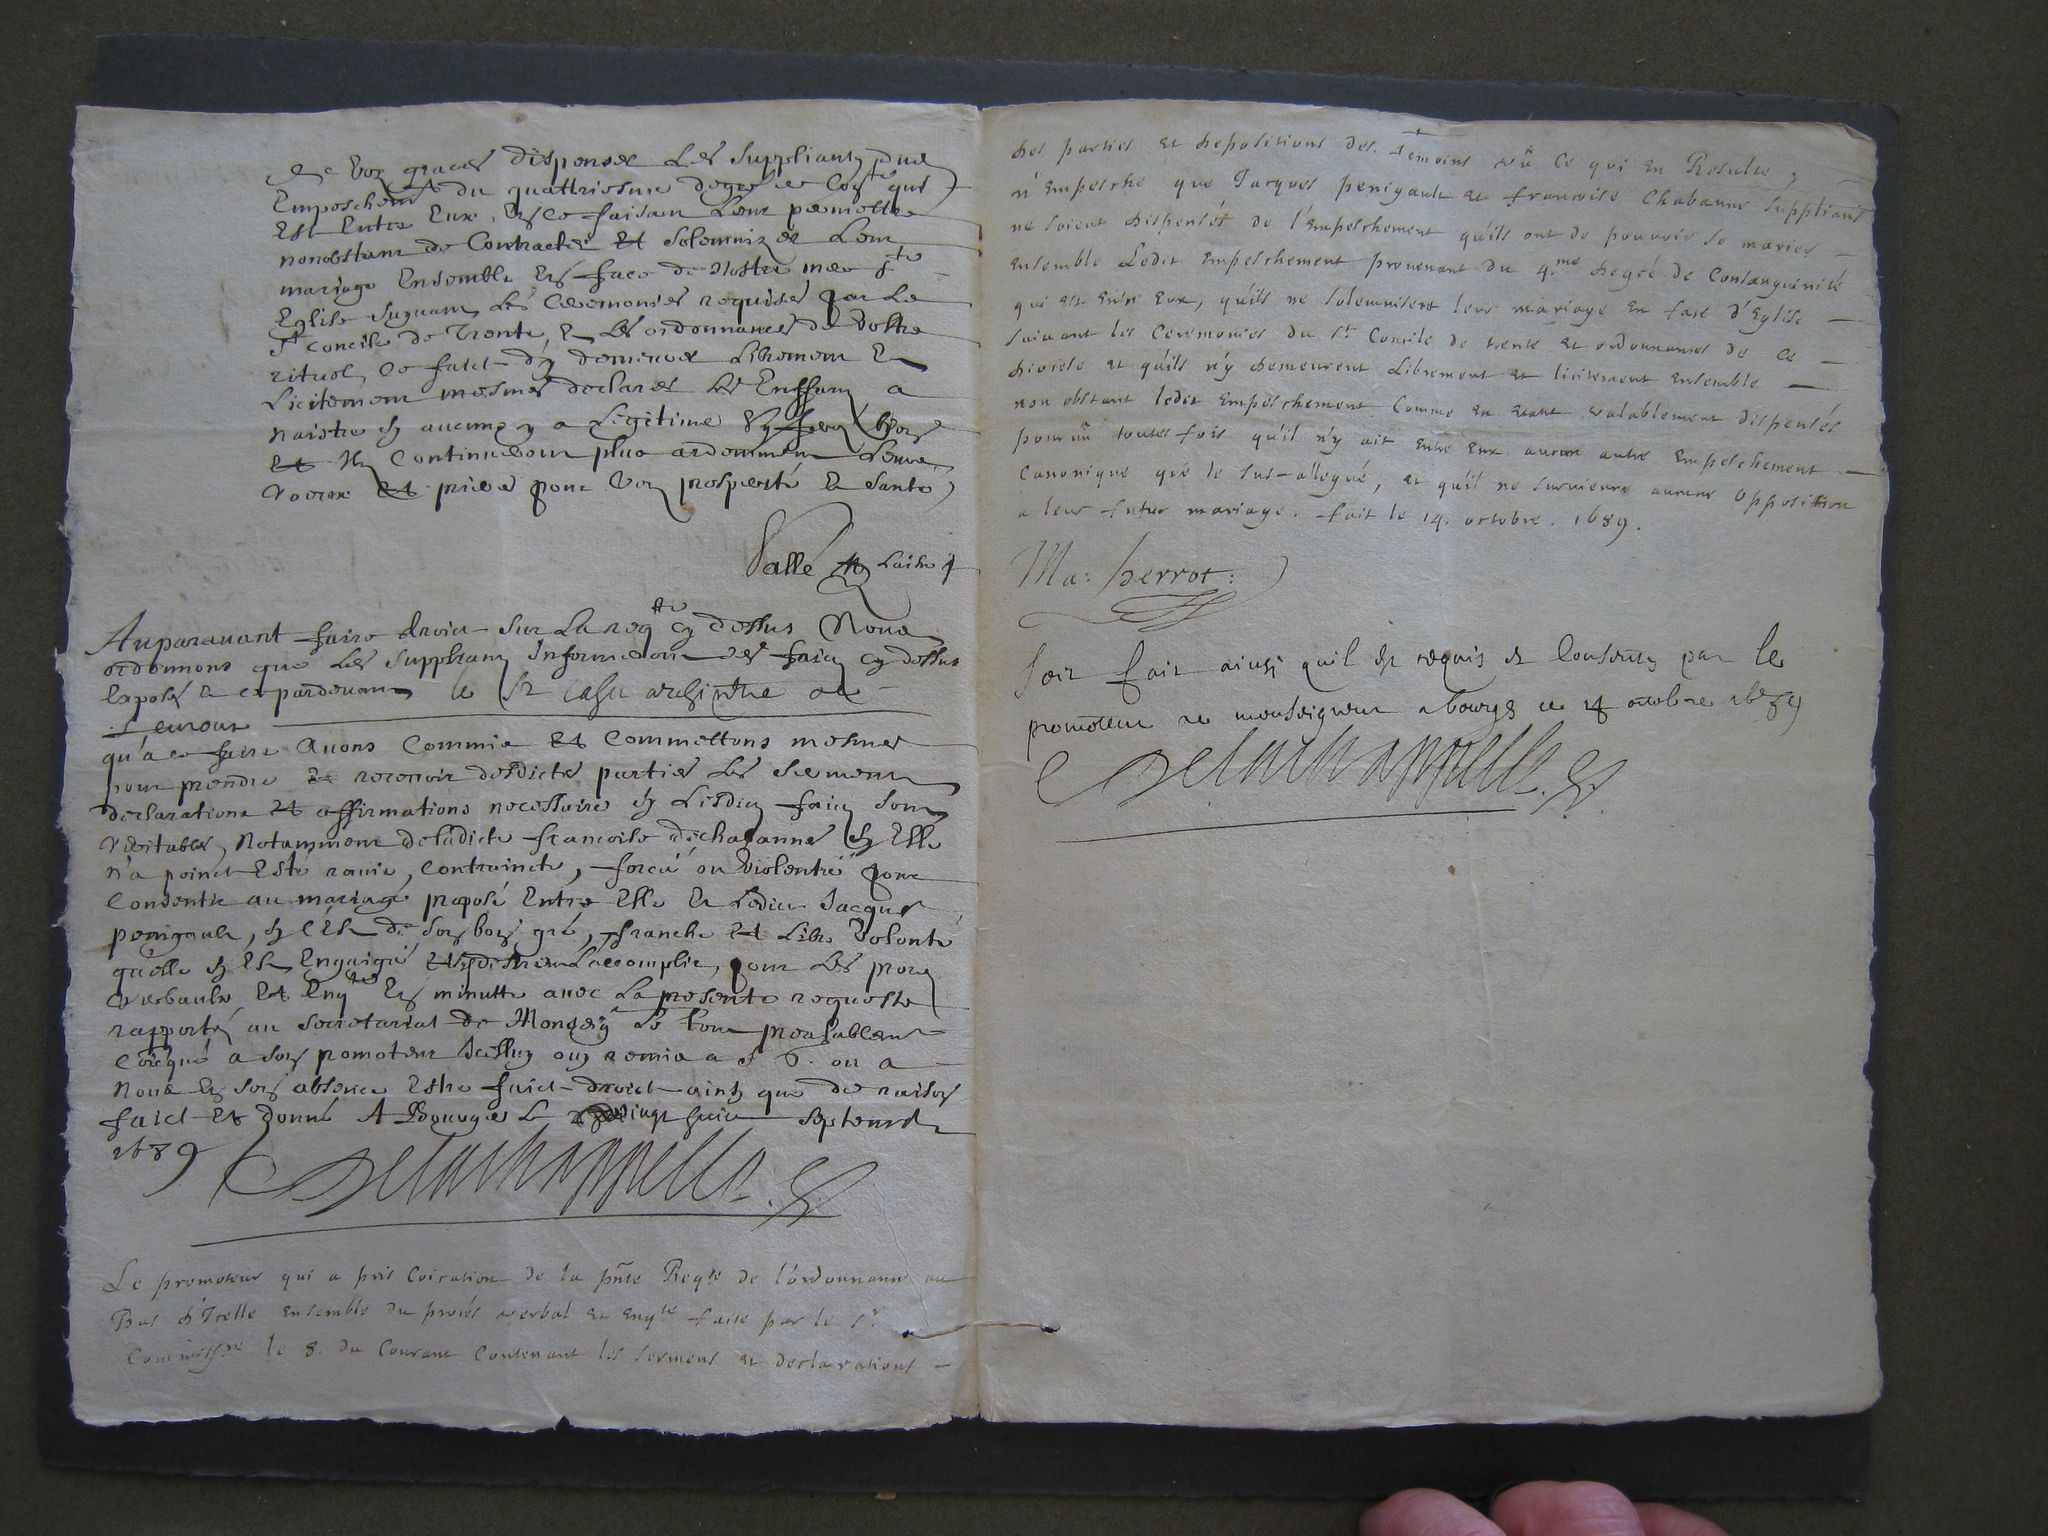 de vos graces dispenser Les Suppliants du
Empeschemt du quattriesme degré de
Est Entre Eux, En ce faisan Leur permettre
nonobstant de Contracter Et solemnizer Leur
mariage Ensemble En face de Nostre mere Ste
Eglise suyuant Les Ceremonies requises par Le
St concile de Trente, & Les ordonnances de Vostre
rituel, Ce faict d'y demeurer Librement &
Licitement mesmes declarer Les Enffans a
naistre sy aucuns y a Legitime
Et Ilz Continueront plus ardemment Leurs
voeux Et prieres pour vos prosperité & santé
Vallé
Auparauant faire droict sur La reqte cy dessus Nous
ordonnons que Les supplians Informeront des faicts cy dessus
Exposés & ce pardeuant le Sr archiptre de
Leuroux
qu'a ce faire Auons Commis Et Commettons mesmes
pour prendre Et receuoir desdictes parties Les sermens
declarations Et affirmations necessaires sy Lesdicts faicts sont
veritables, Notamment deladicte francoise dechabannes sy Elle
n'a poinct Esté rauie, contraincte, forcée ou violentée pour
Consentir au mariage proposé Entre Elle & Ledict Jacques
penigault, sy c'Est de son bon gré, franche Et Libre Volonté
qu'elle s'y Est Engaigée L'accomplir, pour Les proces
verbaulx Et Enqtes En minutte auec La presente requeste
rapportés au secretariat de Monseigr Le tout prealablemt
coicqué a son promoteur Icelluy ouy remis a S G. ou a
Nous En son absence Estre faict droict ainsy que de raison
faict Et donné A Bourges Le vingt huict septembre
1689 Delachappelle
Le promoteur qui a pris Coication de la pñte Reqte de l'ordonnance au
Bas d'Icelle ensemble du procés verbal et enqte faite par le Sr
Commissre le 8. du Courant Contenant les sermens et declarations
des parties et depositions des Temoins vû ce qui en Resulte,
n'Empesche que Jacques penigault et francoise Chabanne suppliants
ne soient dispensés de l'Empeschement qu'ils ont de pouvoir se marier
ensemble Ledit Empeschement provenant du 4.me degré de Consanguinité
qui est entre eux, qu'ils ne solemnisent leur mariage en face d'Eglise
suivant les Ceremonies du St Concile de trente et ordonnances de ce
diocese et qu'ils n'y demeurent Librement et licitement ensemble
non obstant ledit empeschement Comme en etant valablement dispensés
pourvû toutes fois qu'il n'y ait entre Eux aucun autre Empeschement
Canonique que le sus-allegué, et qu'il ne survienne aucune opposition
a leur futur mariage. fait le 14. octobre. 1689.
Ma: perrot:
Soit fait ainsy quil est requis et consenty par le
promoteur de monseigneur a bourges ce 14 octobre 1689
Delachappelle